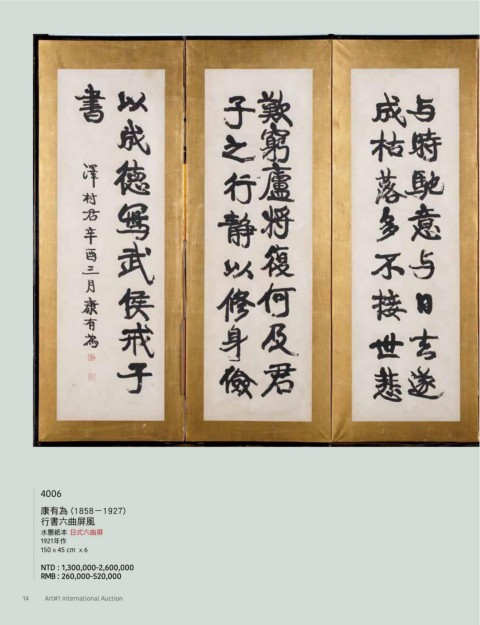 與時馳意與日去遂
成枯落多不接世悲
歎窮廬將復何及君
子之行靜以修身儉
以成德寫武侯戒子
書
澤村君辛酉三月康有為
4006
康有為 (1858－1927)
行書六曲屏風
水墨紙本 日式六曲屏
1921年作
150 x 45 cm x 6
NTD : 1,300,000-2,600,000
RMB : 260,000-520,000
14 Art#1 International Auction